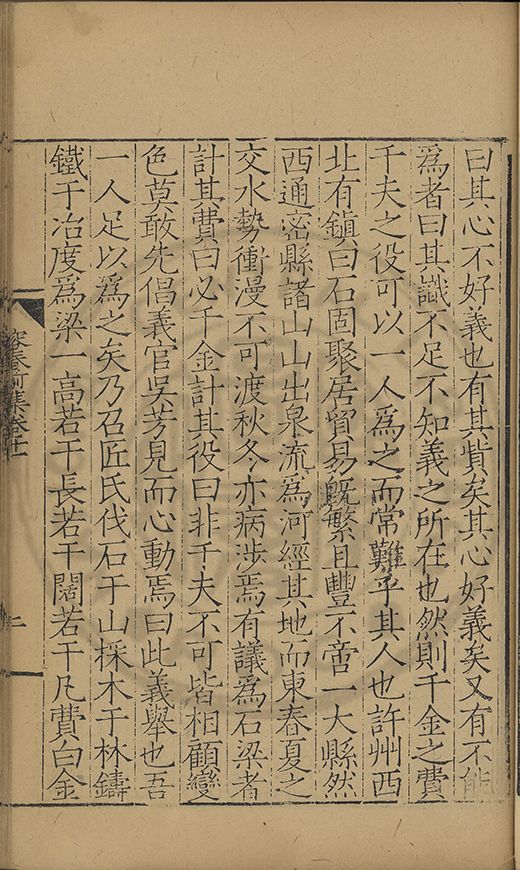 曰其心不好義也有其貲矣其心好義矣又有不能
爲者曰其識不足不知義之所在也然則千金之費
千夫之役可以一人爲之而常難乎其人也許州西
北有鎮曰石固聚居貿易旣繁且豐不啻一大縣然
西通密縣諸山山出泉流爲河經其地而東春夏之
交水勢衝漫不可渡秋冬亦病涉焉有議爲石梁者
計其費曰必千金計其役曰非千夫不可皆相顧變
色莫敢先倡義官吳芳見而心動焉曰此義舉也吾
一人足以爲之矣乃召匠氏伐石于山採木于林鑄
鐵于冶度爲梁一高若干長若干闊若干凡費白金
集卷十二
二